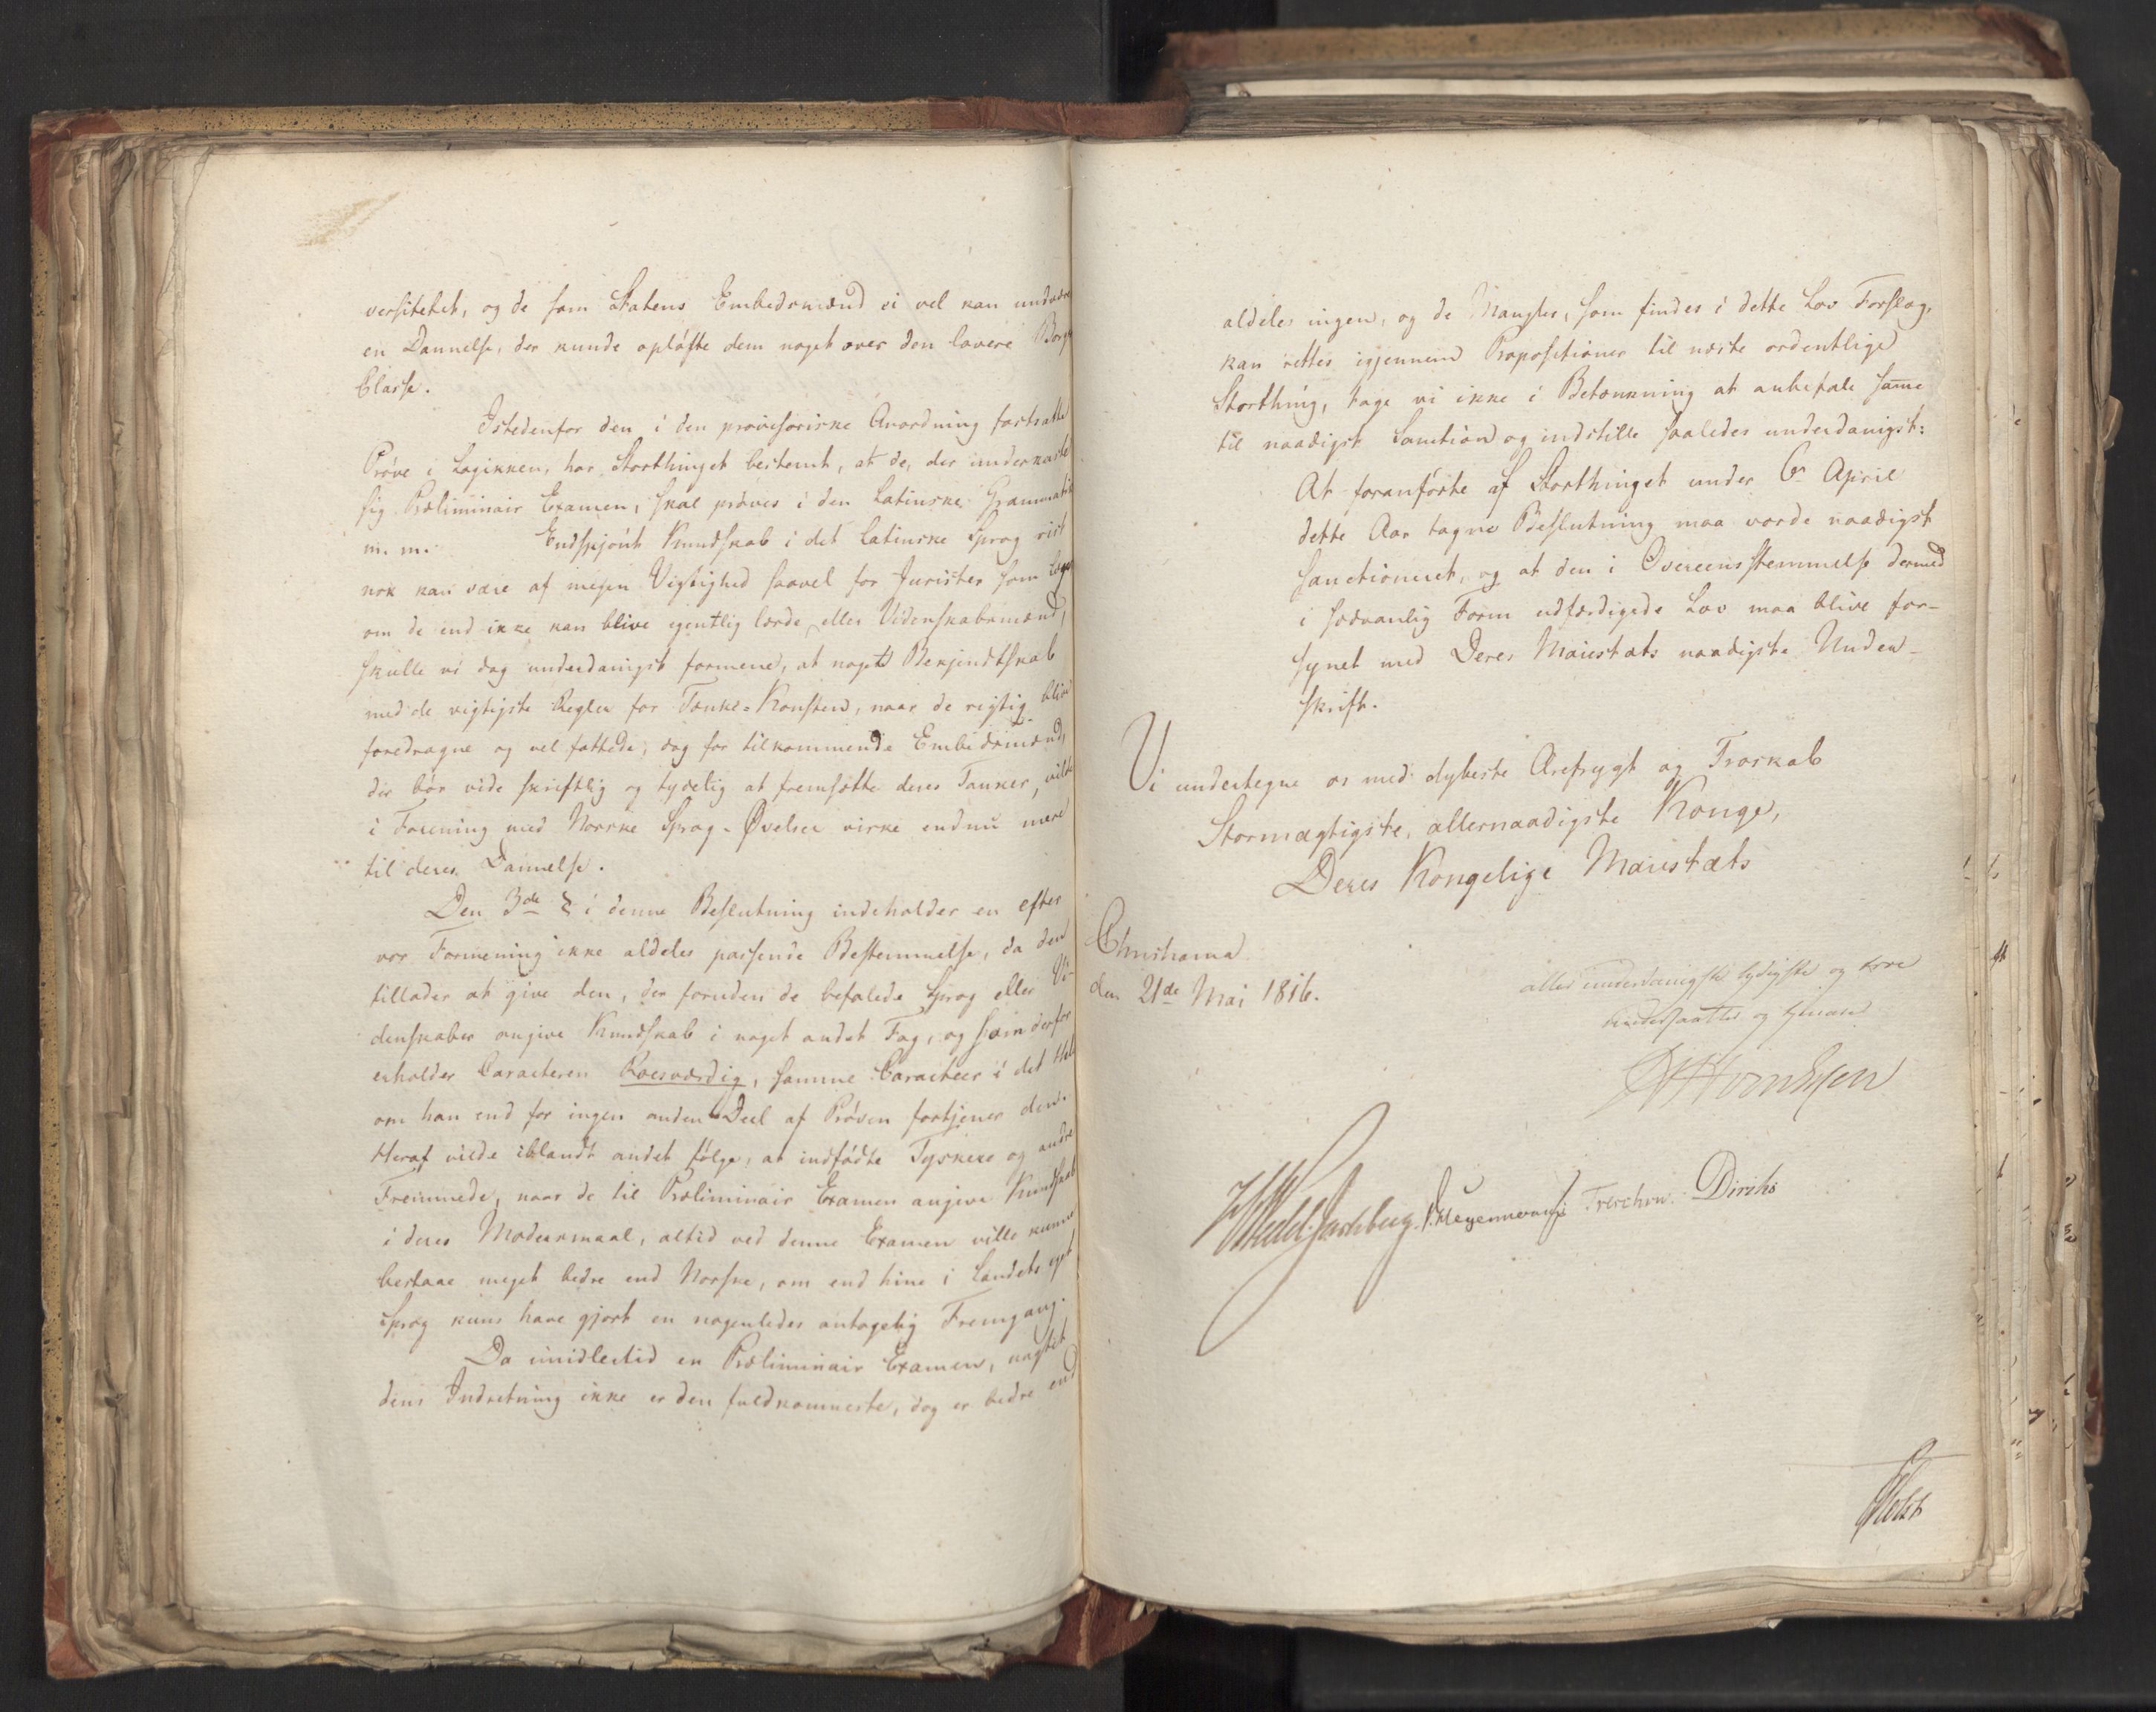 versitetet, og de som Statens Embedsmænd ei vel kan undvære
en Dannelse, der kunde opløfte dem noget over den lavere Borger
Classe.
Istedenfor den i den provisoriske Anordning fastsatte
Prøve i Logikken, har Storthinget bestemt, at de, der underkaste
sig Præliminair Examen, skal prøves i den latinske Grammatik
m. m. Endskjønt Kundskab i det latinske Sprog vist
nok kan være af megen Vigtighed saavel for Jurister som Læger
om de end ikke kan blive egentlig lærde eller Videnskabsmænd,
skulle vi dog underdanigst formene, at noget Bekjendtskab
med de vigtigste Regler for Tænke-Konsten, naar de rigtig blive
foredragne og vel fattede, dog for tilkommende Embedsmænd,
der bør vide skriftlig og tydelig at fremsætte deres Tanker, vilde
i Forening med Norske Sprog-Øvelser virke endnu mere
til deres Dannelse.
Den 3de § i denne Beslutning indeholder en efter
vor Formening ikke aldeles passende Bestemmelse, da den
tillader at give den, der foruden de befalede Sprog eller Vi-
denskaber angive Kundskab i noget andet Fag, og som derfor
erholder Caracteren Roesværdig, samme Caracteer i det Hele
om han end for ingen anden Deel af Prøven fortjener den.
Heraf vilde iblandt andet følge, at indfødte Tyskere og andre
Fremmede, naar de til Præliminair Examen angive Kundskab
i deres Modersmaal, altid ved denne Examen ville kunne
bestaae meget bedre end Norske, om end hine i Landets eget
Sprog kuns have gjort en nogenledes antagelig Fremgang.
Da imidlertid en Præliminair Examen, uagtet
dens Indretning ikke er den fuldkomneste, dog er bedre end
aldeles ingen, og de Mangler, som findes i dette Lov Forslag,
kan rettes igjennem Propositioner til næste ordentlige
Storthing, tage vi ikke i Betænkning at anbefale same
til naadigst Sanction og indstille saaledes underdanigst:
At foranførte af Storthinget under 6r April
dette Aar tagne Beslutning maa vorde naadigst
sanctioneret, og at den i Overeensstemmelse dermed
i sædvanlig Form udfærdigede Lov maa blive for-
synet med Deres Maiestæts naadigste Under-
skrift.
Vi undertegne os med dybeste Ærefrygt og Troskab
Stormægtigste, allernaadigste Konge,
Deres Kongelige Maiestæts
Christiania
den 21de Mai 1816.
allerunderdanigste lydigste og troe
undersaatter og tjenere
Wedel Jarlsberg. Treschow. Diriks
Holst